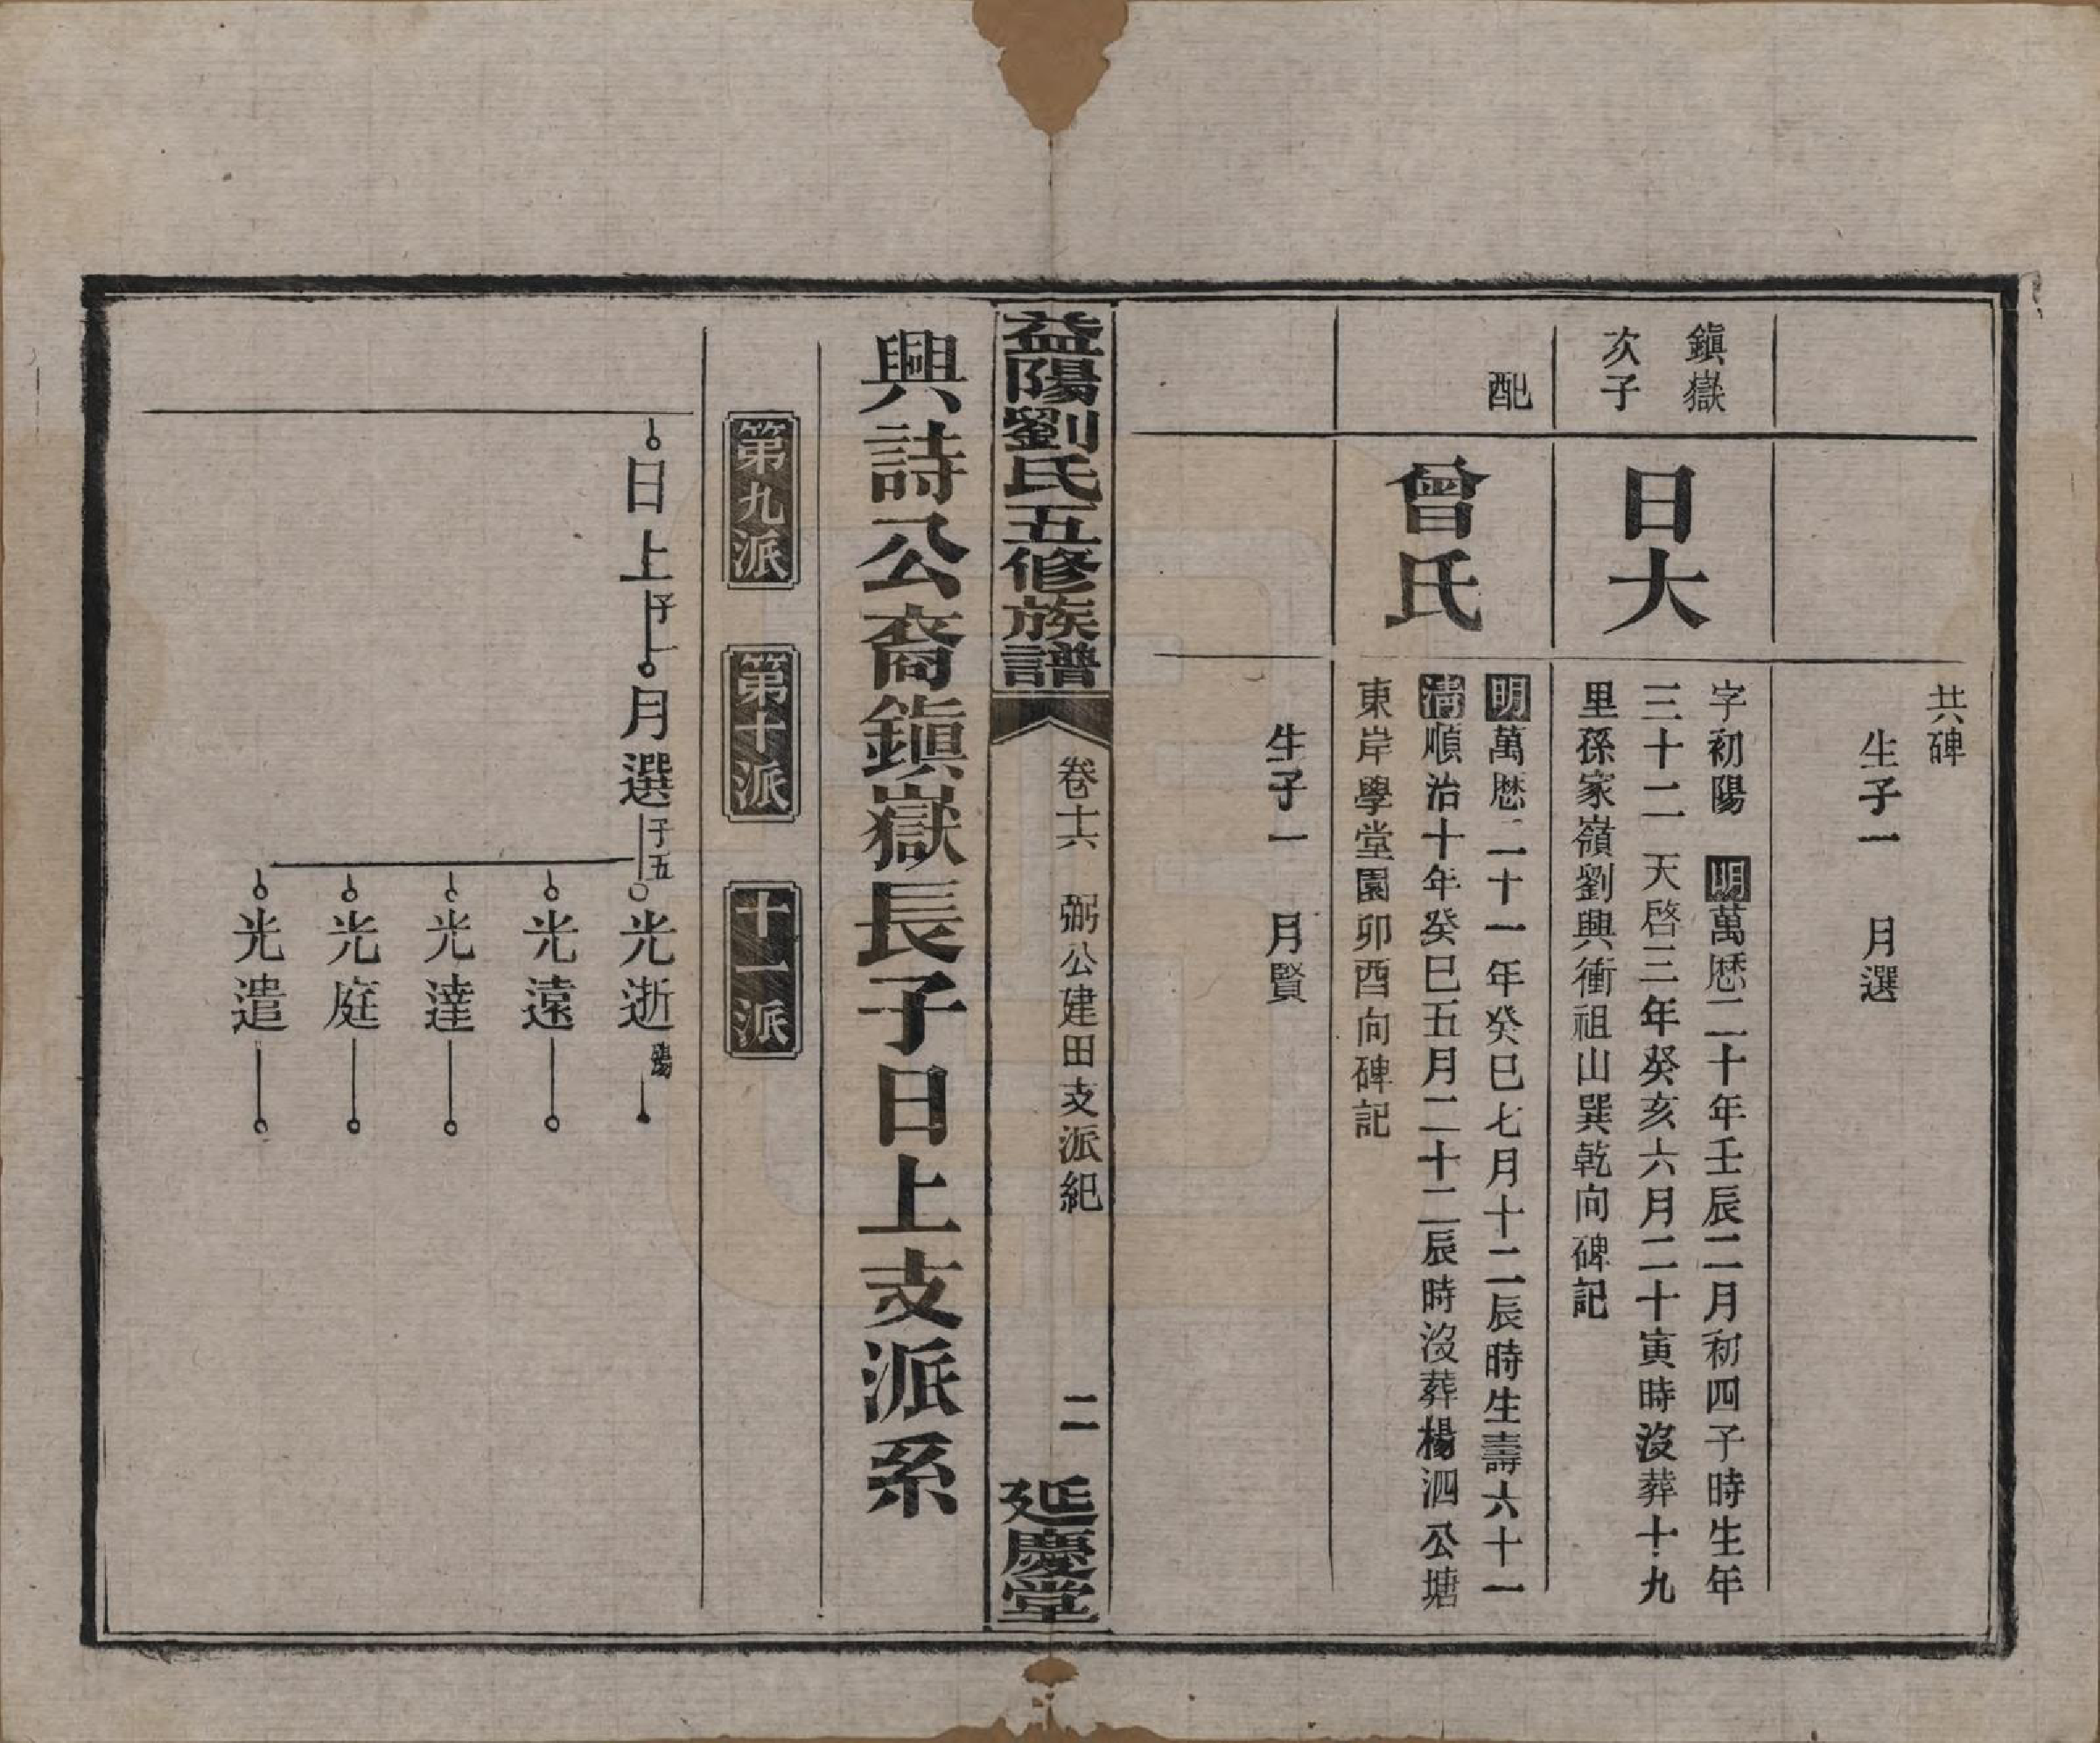 共碑
生子一　月選
鎮嶽
次子
日大
字初陽　明萬厯二十年壬辰二月初四子時生年
三十二　天啓三年癸亥六月二十寅時沒葬十九
里孫家嶺劉興衝祖山巽乾向碑記
配
曾氏
明萬厯二十一年癸巳七月十二辰時生壽六十一
清順治十年癸巳五月二十二辰時沒葬楊泗公塘
東岸學堂園卯酉向碑記
生子一　月賢
益陽劉氏五修族譜
卷十六　弼公建田支派紀
二
延慶堂
興詩公裔鎮嶽長子日上支派系
第九派　第十派　十一派
日上　子一　月選　子五　光逝　殤
光遠
光達
光庭
光遣